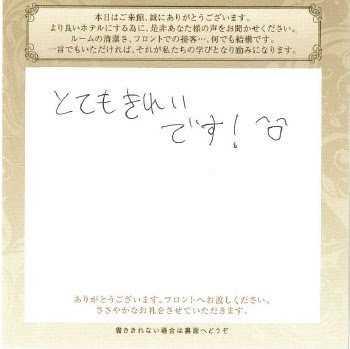 本日はご来館、誠にありがとうございます。
より良いホテルにする為に、是非あなた様の声をお聞かせください。
ルームの清潔さ、フロントでの接客…、何でも結構です。
一言でもいただければ、それが私たちの学びとなり励みになります。
とてもきれい
です！^□^
ありがとうございます。フロントへお渡しください。
ささやかなお礼をさせていただきます。
書ききれない場合は裏面へどうぞ